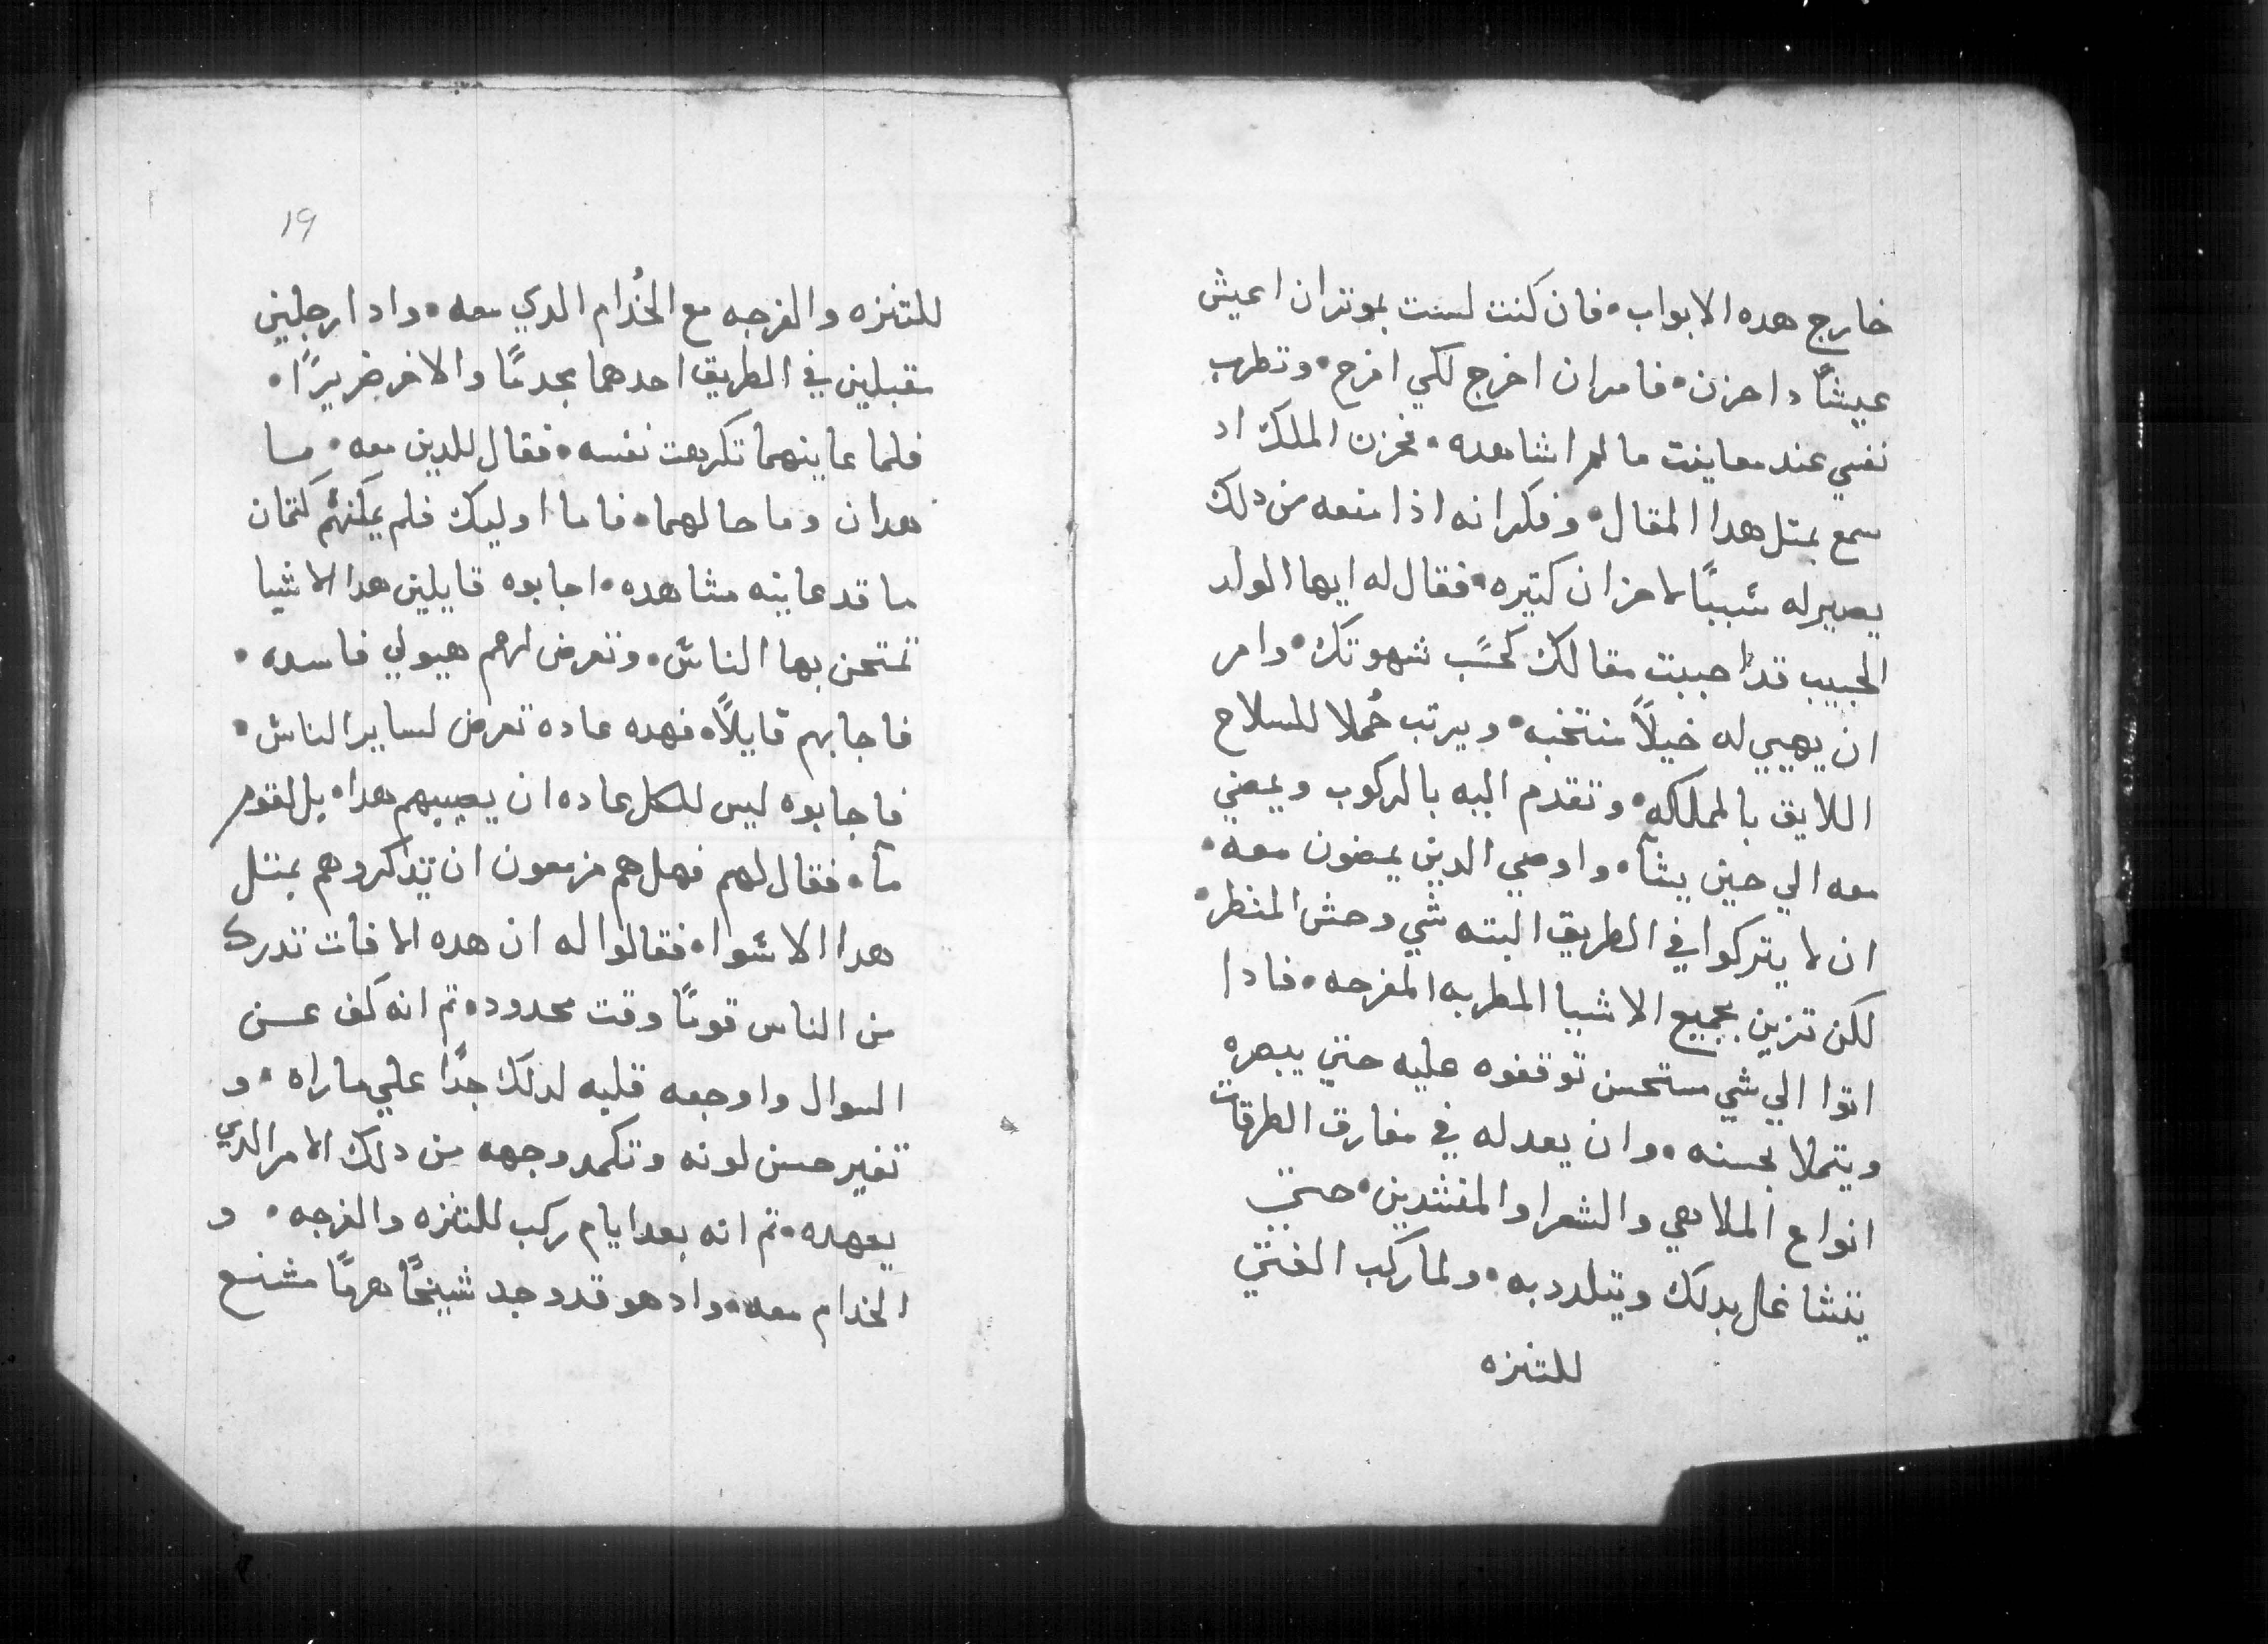 خارج هده الابواب • فان كنت لست بموتر ان اعيش
عيشاً دا حزن • فامر ان اخرج لكي افرح • وتطرب
نفسي عند معاينت ما لم اشاهده • فحزن الملك اد
سمع بمتل هدا المقال • وفكر انه اذا منعه من دلك
يصير له سبباً لاحزان كتيره • فقال له ايها الولد
الحبيب قد احببت مقالك كحسَب شهوتك • وامر
ان يهيي له خيلاً منتخبه • ويرتب حُملا للسلاح
اللايق بالمملكه • وتقدم اليه بالركوب ويمضي
معه الي حين يشآ • واوصي الدين يمضون معه •
ان لا يتركوا في الطريق البته شي وحش المنظر •
لكن تزين بجميع الاشيا المطربه المفرحه • فادا
اتوا الي شي مستحسن توقفوه عليه حتي يبصره
ويتملا بحسنه • وان يعدله في مفارق الطرقات
انواع الملاهي والشعرا والمنشدين • حتي
يتشاغل بدلك ويتلدد به • ولما ركب الفتي
للتنزه
١٩
للتنزه والفرجه مع الخُدام الدي معه • وادا رجلين
مقبلين في الطريق احدهما مجدمًا والاخر ضريرًا •
فلما عاينهما تكرهت نفسه • فقال للدين معه • ما
هدان وما حالهما • فاما اوليك فلم يمكنهم كتمان
ما قد عاينه مشاهده • اجابوه قايلين هدا الاشيا
تمتحن بها الناس • وتعرض لهم هيولي فاسده •
فاجابهم قايلاً • فهده عاده تعرض لساير الناس •
فاجابوه ليس للكل عاده ان يصيبهم هدا • بل لقوم
مآ • فقال لهم فهل هم مزمعون ان يتذكروهم بمتل
هدا الاسوا • فقالوا له ان هده الافات تدرك
من الناس قومًا وقت محدود • تم انه كف عن
السوال واوجعه قلبه لدلك جدًا علي ماراه • و
تغير حسن لونه وتكمد وجهه من دلك الامر الدي
يعهده • تم انه بعد ايام ركب للتنزه والفرجه • و
الخدام معه • واد هو قد وجد شيخًا هرمًا مشنع